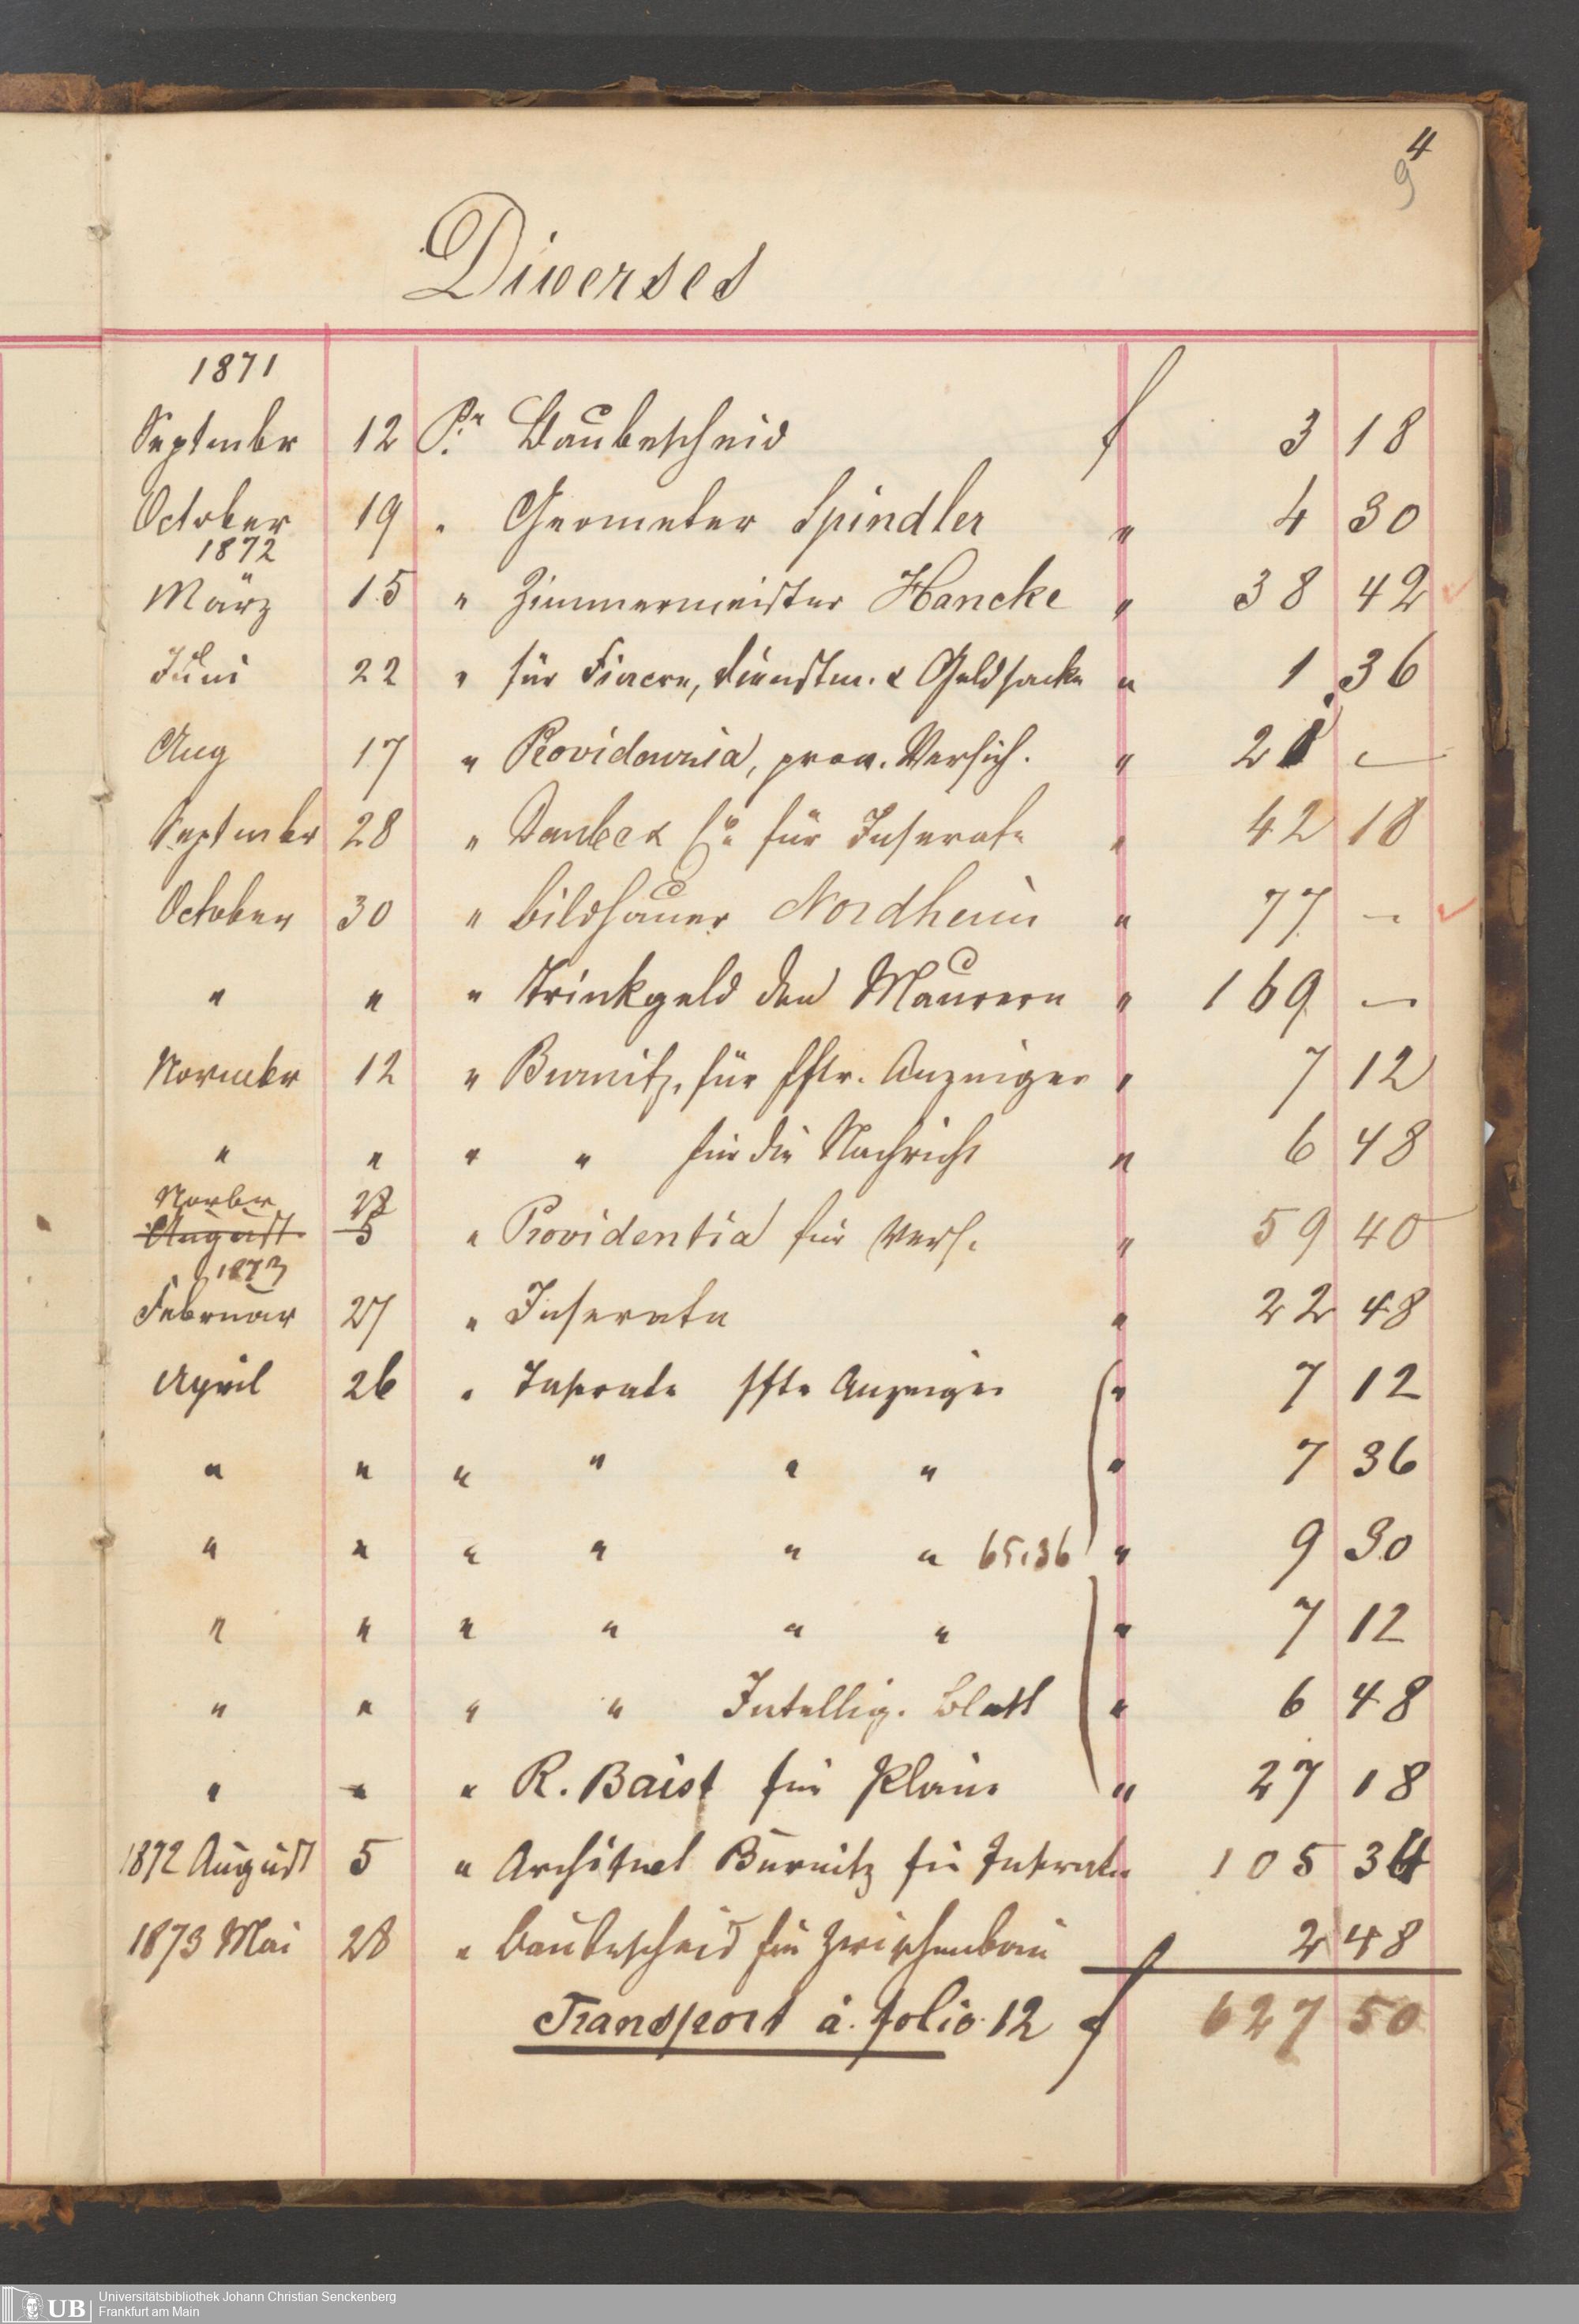 4
9
Diverses
1871
Septembr 12 Pr. Baubescheid f 3 18
October 19 " Geometer Spindler " 4 30
1872
März 15 " Zimmermeister Hancke " 38 42
Juni 22 " für Fiacre, Dienstm. & Geldsacke " 1.36
Aug 17 " Providentia, prov. Versich. " 21 —
Septembr 28 " Daube & Co für Inserate " 42 18
October 30 " Bildhauer Nordheim " 77 —
" " " Trinkgeld den Maurern " 169 —
Novembr 12 " Burnitz, für Fftr. Anzeiger " 7 12
" " " " für die Nachricht " 6 48
Novbr 28
August 5 " Providentia für Vers. " 59 40
1873
Februar 27 " Inserate " 22 48
April 26 " Inserate Fftr Anzeiger " 7 12
" " " " " " " 7 36
" " " " " " 65.36 " 9 30
" " " " " " " 7 12
" " " " Intellig. Blatt " 6 48
" " " R. Baist für Pläne " 27 18
1872 August 5 " Architect Burnitz für Inserate 105 34
1873 Mai 28 " Baubescheid für Zwischenbau 2 48
Transport à folio 12 f 627 50
UB
Universitätsbibliothek Johann Christian Senckenberg
Frankfurt am Main